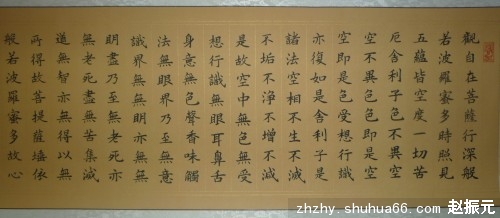 觀自在菩薩行深般
若波羅蜜多時照見
五蘊皆空度一切苦
厄舍利子色不異空
空不異色色即是空
空即是色受想行識
亦復如是舍利子是
諸法空相不生不滅
不垢不淨不增不減
是故空中無色無受
想行識無眼耳鼻舌
身意無色聲香味觸
法無眼界乃至無意
識界無無明亦無無
明盡乃至無老死亦
無老死盡無苦集滅
道無智亦無得以無
所得故菩提薩埵依
般若波羅蜜多故心
zhzhy.shuhua66.com 赵振元